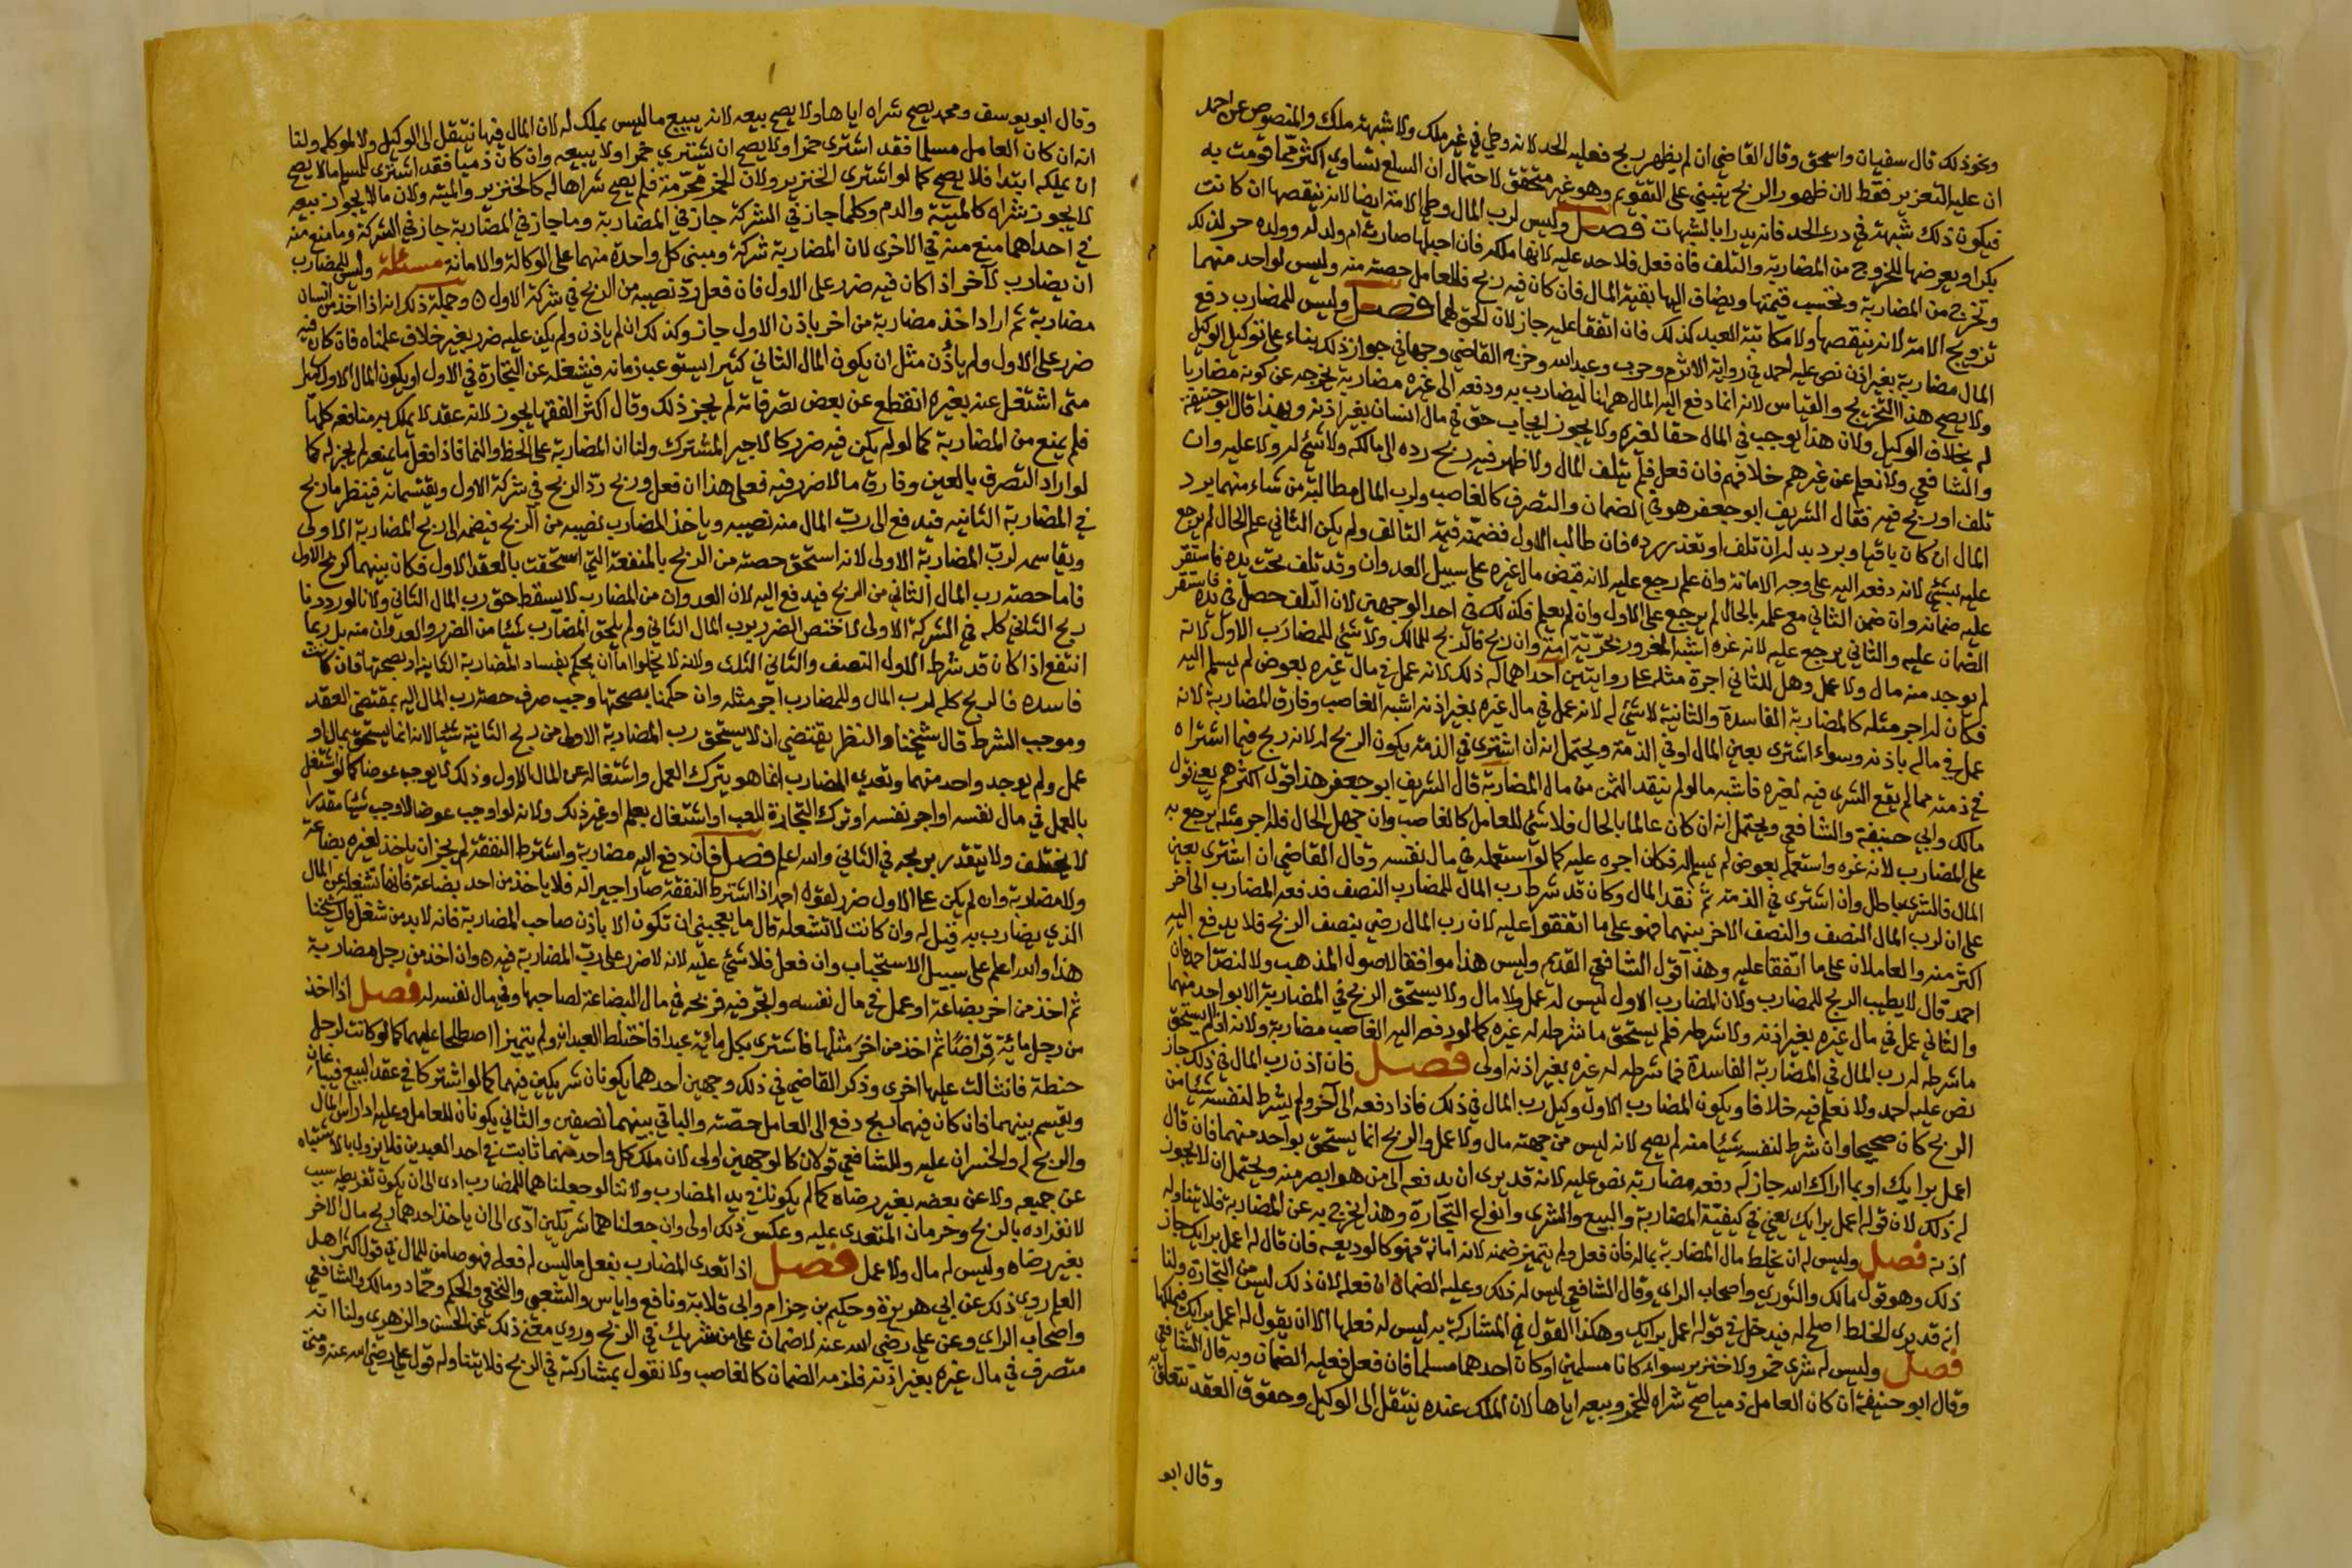 ونحو ذلك قال سفيان واسحق وقال القاضي ان لم يظهر ربح فعليه الحد لانه وطي في غير ملك ولا شبهة ملك والمنصوص عن احمد
ان عليه التعزير فقط لان ظهور الربح ينبني على التقويم وهو غير متحقق لاحتمال ان السلع تساوي اكثر مما قومت به
فيكون ذلك شبهة في درء الحد فانه يدرا بالشبهات فصل وليس لرب المال وطي الامة ايضا لانه ينقصها ان كانت
بكرا ويعرضها للخروج من المضاربة والتلف فان فعل فلا حد عليه لانها ملكه فان احبلها صارت ام ولد له وولده حر لذلك
وتخرج من المضاربة وتحسب قيمتها ويضاف اليها بقية المال فان كان فيه ربح فللعامل حصته منه وليس لواحد منهما
تزويج الامة لانه ينقصها ولا مكاتبة العبد كذلك فان اتفقا عليه جاز لان الحق لهما فصل وليس للمضارب دفع
المال مضاربة بغير اذن نص عليه احمد في رواية الاثرم وحرب وعبد الله وخرج القاضي وجها في جواز ذلك بناء على توكيل الوكيل
ولا يصح هذا التخريج والقياس لانه انما دفع اليه المال ههنا ليضارب به ودفعه الى غيره مضاربة يخرجه عن كونه مضاربا
له بخلاف الوكيل ولان هذا يوجب في المال حقا لغيره ولا يجوز ايجاب حق في مال انسان بغير اذنه وبهذا قال ابو حنيفة
والشافعي ولا نعلم عن غيرهم خلافهم فان فعل فلم يتلف المال ولا ظهر فيه ربح رده الى مالكه ولا شيء له ولا عليه وان
تلف او ربح فيه فقال الشريف ابو جعفر هو في الضمان والتصرف كالغاصب ولرب المال مطالبة من شاء منهما برد
المال ان كان باقيا وبرد بدله ان تلف او تعذر رده فان طالب الاول فضمنه قيمة التالف ولم يكن الثاني علم الحال لم يرجع
عليه بشيء لانه دفعه اليه على وجه الامانة وان علم رجع عليه لانه قبض مال غيره على سبيل العدوان وقد تلف تحت يده فاستقر
عليه ضمانه وان ضمن الثاني مع علمه بالحال لم يرجع على الاول وان لم يعلم فكذلك في احد الوجهين لان التلف حصل في يده فاستقر
الضمان عليه والثاني يرجع عليه لانه غره اشبه المغرور بحرية امة وان ربح فالربح للمالك ولا شيء للمضارب الاول لانه
لم يوجد منه مال ولا عمل وهل للثاني اجرة مثله على روايتين احداهما له ذلك لانه عمل في مال غيره بعوض لم يسلم اليه
فكان له اجر مثله كالمضاربة الفاسدة والثانية لا شيء له لانه عمل في مال غيره بغير اذنه اشبه الغاصب وفارق المضاربة لانه
عمل في ماله باذنه وسواء اشترى بعين المال او في الذمة ويحتمل انه ان اشترى في الذمة يكون الربح له لانه ربح فيما اشتراه
في ذمته مما لم يقع الشرى فيه لغيره فاشبه ما لو لم ينقد الثمن من مال المضاربة قال الشريف ابو جعفر هذا قول اكثرهم يعني قول
مالك وابي حنيفة والشافعي ويحتمل انه ان كان عالما بالحال فلا شيء للعامل كالغاصب وان جهل الحال فله اجر مثله يرجع به
على المضارب لانه غره واستعمله بعوض لم يسلم له فكان اجره عليه كما لو استعمله في مال نفسه وقال القاضي ان اشترى بعين
المال فالشرى باطل وان اشترى في الذمة ثم نقد المال وكان قد شرط رب المال للمضارب النصف فدفعه المضارب الى اخر
على ان لرب المال النصف والنصف الاخر بينهما فهو على ما اتفقوا عليه لان رب المال رضي بنصف الربح فلا يدفع اليه
اكثر منه والعاملان على ما اتفقا عليه وهذا قول الشافعي القديم وليس هذا موافقا لاصول المذهب ولا لنص احمد فان
احمد قال لا يطيب الربح للمضارب ولان المضارب الاول ليس له عمل ولا مال ولا يستحق الربح في المضاربة الا بواحد منهما
والثاني عمل في مال غيره بغير اذنه ولا شرطه فلم يستحق ما شرطه له غيره كما لو دفعه اليه الغاصب مضاربة ولانه اذا لم يستحق
ما شرطه له رب المال في المضاربة الفاسدة فما شرطه له غيره بغير اذنه اولى فصل فان اذن رب المال في ذلك جاز
نص عليه احمد ولا نعلم فيه خلافا ويكون المضارب الاول وكيل رب المال في ذلك فاذا دفعه الى آخر ولم يشرط لنفسه شيئا من
الربح كان صحيحا وان شرط لنفسه شيئا منه لم يصح لانه ليس من جهته مال ولا عمل والربح انما يستحق بواحد منهما فان قال
اعمل برايك او بما اراك الله جاز له دفعه مضاربة نص عليه لانه قد يرى ان يدفعه الى من هو ابصر منه ويحتمل ان لا يجوز
له ذلك لان قوله اعمل برايك يعني في كيفية المضاربة والبيع والشرى وانواع التجارة وهذا يخرج به عن المضاربة فلا يتناوله
اذنه فصل وليس له ان يخلط مال المضاربة بماله فان فعل ولم يتميز ضمنه لانه امانة فهو كالوديعه فان قال له اعمل برايك جاز
ذلك وهو قول مالك والثوري واصحاب الراي وقال الشافعي ليس له ذلك وعليه الضمان ان فعله لان ذلك ليس من التجارة ولنا
انه قد يرى الخلط اصلح له فيدخل في قوله اعمل برايك وهكذا القول في المشاركة به ليس له فعلها الا ان يقول له اعمل برايك فيملكها
فصل وليس له شرى خمر ولا خنزير سواء كانا مسلمين او كان احدهما مسلما فان فعل فعليه الضمان وبه قال الشافعي
وقال ابو حنيفة ان كان العامل ذميا صح شراه للخمر وبيعه اياها لان الملك عنده ينتقل الى الوكيل وحقوق العقد تتعلق به
وقال ابو
وقال ابو يوسف ومحمد يصح شراه اياها ولا يصح بيعه لانه يبيع ما ليس بملك له لان المال فيها ينتقل الى الوكيل ولا لموكله ولنا
انه ان كان العامل مسلما فقد اشترى خمرا ولا يصح ان يشتري خمرا ولا يبيعه وان كان ذميا فقد اشترى للمسلم ما لا يصح
ان يملكه ابتدا فلا يصح كما لو اشترى الخنزير ولان الخمر محرمة فلم يصح شراها له كالخنزير والميتة ولان ما لا يجوز بيعه
لا يجوز شراه كالميتة والدم وكلما جاز في الشركة جاز في المضاربة وما جاز في المضاربة جاز في الشركة وما منع منه
في احداهما منع منه في الاخرى لان المضاربة شركة ومبنى كل واحدة منهما على الوكالة والامانة مسئلة وليس للمضارب
ان يضارب لآخر اذا كان فيه ضرر على الاول فان فعل رد نصيبه من الربح في شركة الاول ه وجملة ذلك انه اذا اخذ من انسان
مضاربة ثم اراد اخذ مضاربة من اخر باذن الاول جاز وكذلك ان لم ياذن ولم يكن عليه ضرر بغير خلاف علمناه فان كان فيه
ضرر على الاول ولم ياذن مثل ان يكون المال الثاني كثيرا يستوعب زمانه فيشغله عن التجارة في الاول او يكون المال الاول كثيرا
متى اشتغل عنه بغيره انقطع عن بعض تصرفاته لم يجز ذلك وقال اكثر الفقها يجوز لانه عقد لا يملك به منافعه كلها
فلم يمنع من المضاربة كما لو لم يكن فيه ضرر كالاجير المشترك ولنا ان المضاربة على الحظ والنما فاذا فعل ما يمنعه لم يجز له كما
لو اراد التصرف بالعين وفارق ما لا ضرر فيه فعلى هذا ان فعل وربح رد الربح في شركة الاول ويقتسمانه فينظر ما ربح
في المضاربة الثانيه فيدفع الى رب المال منه نصيبه وياخذ المضارب نصيبه من الربح فيضمه الى ربح المضاربة الاولى
ويقاسمه لرب المضاربة الاولى لانه استحق حصته من الربح بالمنفعة التي استحقت بالعقد الاول فكان بينهما كربح الاول
فاما حصة رب المال الثاني من الربح فيدفع اليه لان العدوان من المضارب لا يسقط حق رب المال الثاني ولانا لو رددنا
ربح الثاني كله في الشركة الاولى لاختص الضرر برب المال الثاني ولم يلحق المضارب شيئا من الضرر والعدوان منه بل ربما
انتفع اذا كان قد شرط الاول النصف والثاني الثلث ولانه لا يخلوا اما ان يحكم بفساد المضاربة الثانية او بصحتها فان كانت
فاسده فالربح كله لرب المال وللمضارب اجر مثله وان حكمنا بصحتها وجب صرف حصة رب المال اليه بمقتضى العقد
وموجب الشرط قال شيخنا والنظر يقتضي ان لا يستحق رب المضاربة الاولى من ربح الثانية شيئا لانه انما يستحق بمال او
عمل ولم يوجد واحد منهما وتعدي المضارب انما هو بترك العمل واشتغاله عن المال الاول وذلك لا يوجب عوضا كما لو اشتغل
بالعمل في مال نفسه او اجر نفسه او ترك التجارة للعب او اشتغال بعلم او غير ذلك ولانه لو اوجب عوضا لاوجب شيئا مقدرا
لا يختلف ولا يتقدر بربحه في الثاني والله اعلم فصل فان دفع اليه مضاربة واشترط النفقة لم يجز ان ياخذ لغيره بضاعة
ولا مضاربة وان لم يكن على الاول ضرر لقول احمد اذا اشترط النفقة صار اجيرا له فلا ياخذ من احد بضاعة فانها تشغله عن المال
الذي يضارب به قيل له وان كانت لا تشغله قال ما يعجبني ان تكون الا باذن صاحب المضاربة فانه لا بد من شغل قال شيخنا
هذا والله اعلم على سبيل الاستحباب وان فعل فلا شيء عليه لانه لا ضرر على رب المضاربة فيه ه وان اخذ من رجل مضاربة
ثم اخذ من اخر بضاعة او عمل في مال نفسه واتجر فيه فربحه في مال البضاعة لصاحبها وفي مال نفسه له فصل اذا اخذ
من رجل مائة قراضا ثم اخذ من اخر مثلها فاشترى بكل مائة عبدا فاختلط العبدان ولم يتميزا اصطلحا عليهما كما لو كانت لرجل
حنطة فانثالت عليها اخرى وذكر القاضي في ذلك وجهين احدهما يكونان شريكين فيهما كما لو اشتركا في عقد البيع فيباعان
ويقسم بينهما فان كان فيهما ربح دفع الى العامل حصته والباقي بينهما نصفين والثاني يكونان للعامل وعليه ادا راس المال
والربح له والخسران عليه وللشافعي قولان كالوجهين اولى لان ملك كل واحد منهما ثابت في احد العبدين فلا يزول بالاشتباه
عن جميعه ولا عن بعضه بغير رضاه كما لم يكونا في يد المضارب ولاننا لو جعلناهما للمضارب ادى الى ان يكون تفريطه سبب
لانفراده بالربح وحرمان المتعدى عليه وعكس ذلك اولى وان جعلناهما شريكين ادى الى ان ياخذ احدهما ربح مال الاخر
بغير رضاه وليس له مال ولا عمل فصل اذا تعدى المضارب بفعل ما ليس له فعله فهو ضامن للمال في قول اكثر اهل
العلم روي ذلك عن ابي هريرة وحكيم بن حزام وابي قلابة ونافع واياس والشعبي والنخعي والحكم وحماد ومالك والشافعي
واصحاب الراي وعن علي رضي الله عنه لا ضمان على من شريك في الربح وروي معنى ذلك عن الحسن والزهري ولنا انه
متصرف في مال غيره بغير اذنه فلزمه الضمان كالغاصب ولا نقول بمشاركته في الربح فلا يتناوله قول علي رضي الله عنه ومتى